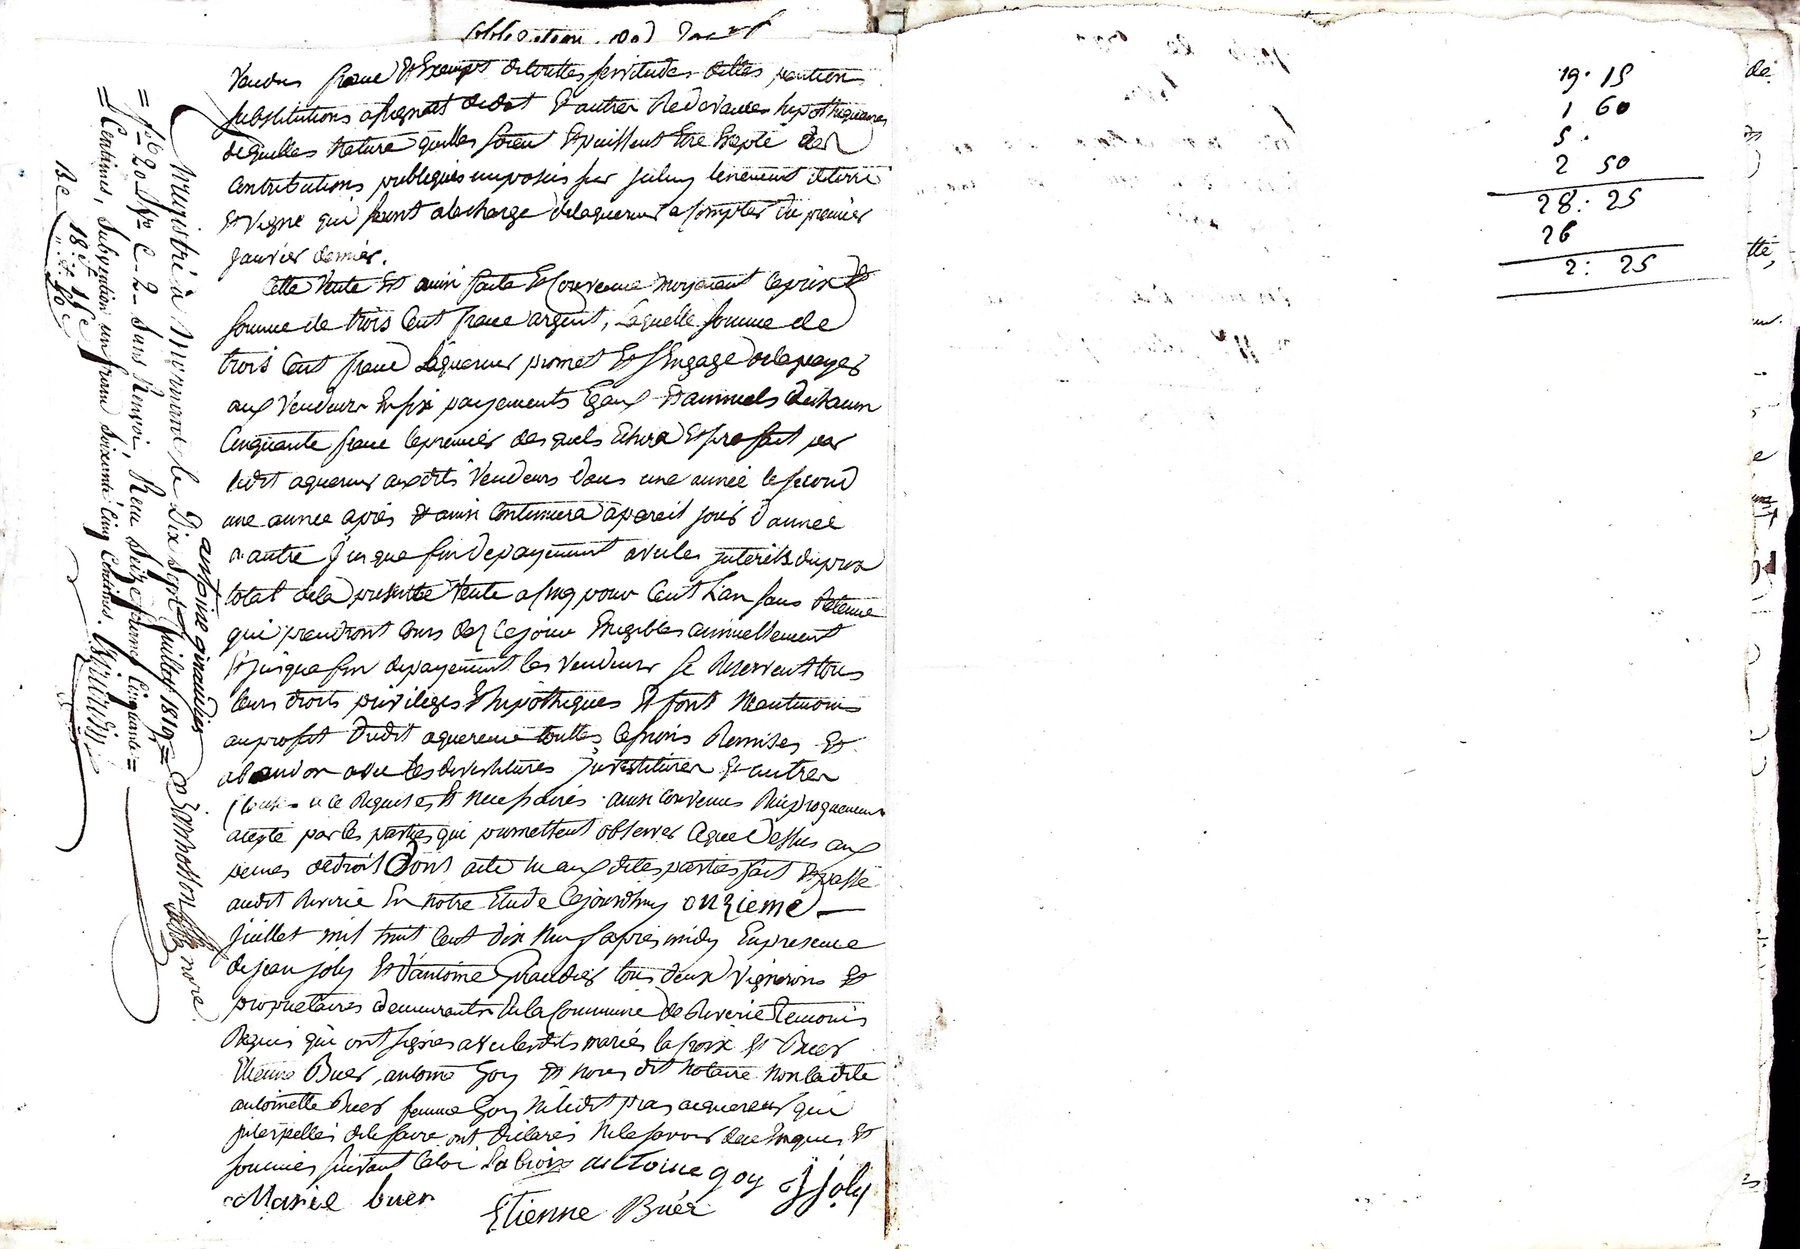 vendus franc et Exempt de touttes servitudes dettes pentions
substitutions augment de dot et autres Redevances hypothequaires
de quelles Nature qu'elles soient et puissent Etre Excepté des
Contributions publiques imposées sur jceluy tenement de terre
et vigne qui seront a la charge de laquereur a Compter du premier
janvier dernier.
Cette vente Et ainsi faitte et Convenue moyenant le prix et
somme de trois Cent franc argent, laquelle somme de
trois Cent franc laquereur promet et sEngage de la payer
aux vendeurs En six payements Egaux et annuels de chacun
Cinquante franc le premier des quels Echera et sera fait par
ledit aquereur auxdits vendeurs dans une année le second
une année après et ainsi Continuera a pareil jour d'année
a autre jusque fin de payement avec les jnterets du prix
total de la presentte vente a cinq pour Cent L'an sans Retenue
qui prendront Cours dez ce jour Exigibles annuellement
et jusque fin de payement les vendeurs se Reservent tous
leurs droits privileges et hipotheques et font Neantmoins
au profit dudit aquereur touttes demions Remises et
abandon avec les devestitures jnvestitures et autres
Clauses a ce Requises et necessaires ainsi Convenus Reciproquement
accepté par les parties qui promettent observer ce que dessus aux
peines de droit Dont acte lu aux dites parties fait et passé
audit Riverie En notre Etude Cejourdhuy onzieme
juillet mil huit Cent dix Neuf après midy En presence
de jean joly et d'antoine Giraudier tous deux vignerons et
proprietaires demeurants En la Commune de Riverie temoins
Requis qui ont signés avec lesdits mariés la Croix et Buer
Etienne Buer, antoine Goy et nous dit Notaire Non la dite
antoinette Buer femme Goy Ni ledit aquereur qui
jnterpellés de le faire ont declarés Ne le savoir de ce Enquis et
sommés suivant la loi La Croix antoine goy J joly
Marie buer
Etienne Buér
antoine giraudier
Enregistré à Mornant le Dix Sept juillet 1819
f° 20 V° C - 2 - Sans Renvoi, Reçu Seize francs Cinquante
Centimes, Subvention un franc Soixante Cinq Centimes.
18 f 15 c
19. 15
1 60
5.
2 50
28: 25
26
2: 25